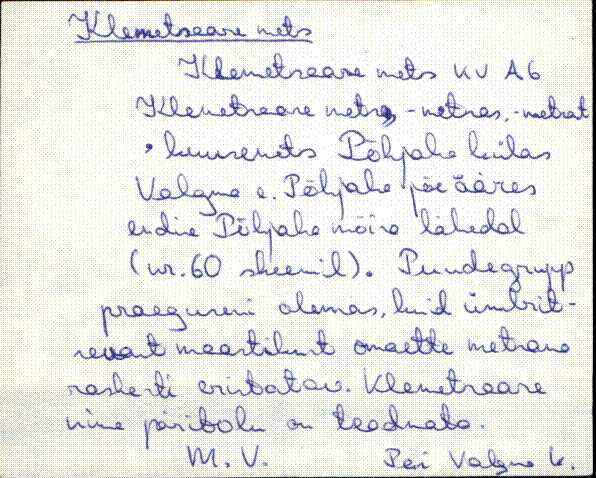 Klemetsaare mets
Klemetsaare mets KV A6
Klemetsaare metsa, -metsas, -metsat
• kuusemets Põhjaka külas
Valgma e. Põhjaka jõe ääres
endise Põhjaka mõisa lähedal
(nr. 60 skeemil). Puudegrupp
praeguseni olemas, kuid ümbrit-
sevast maastikust omaette metsana
raskesti eristatav. Klemetsaare
nime päritolu on teadmata.
M. V. Pai Valgma k.